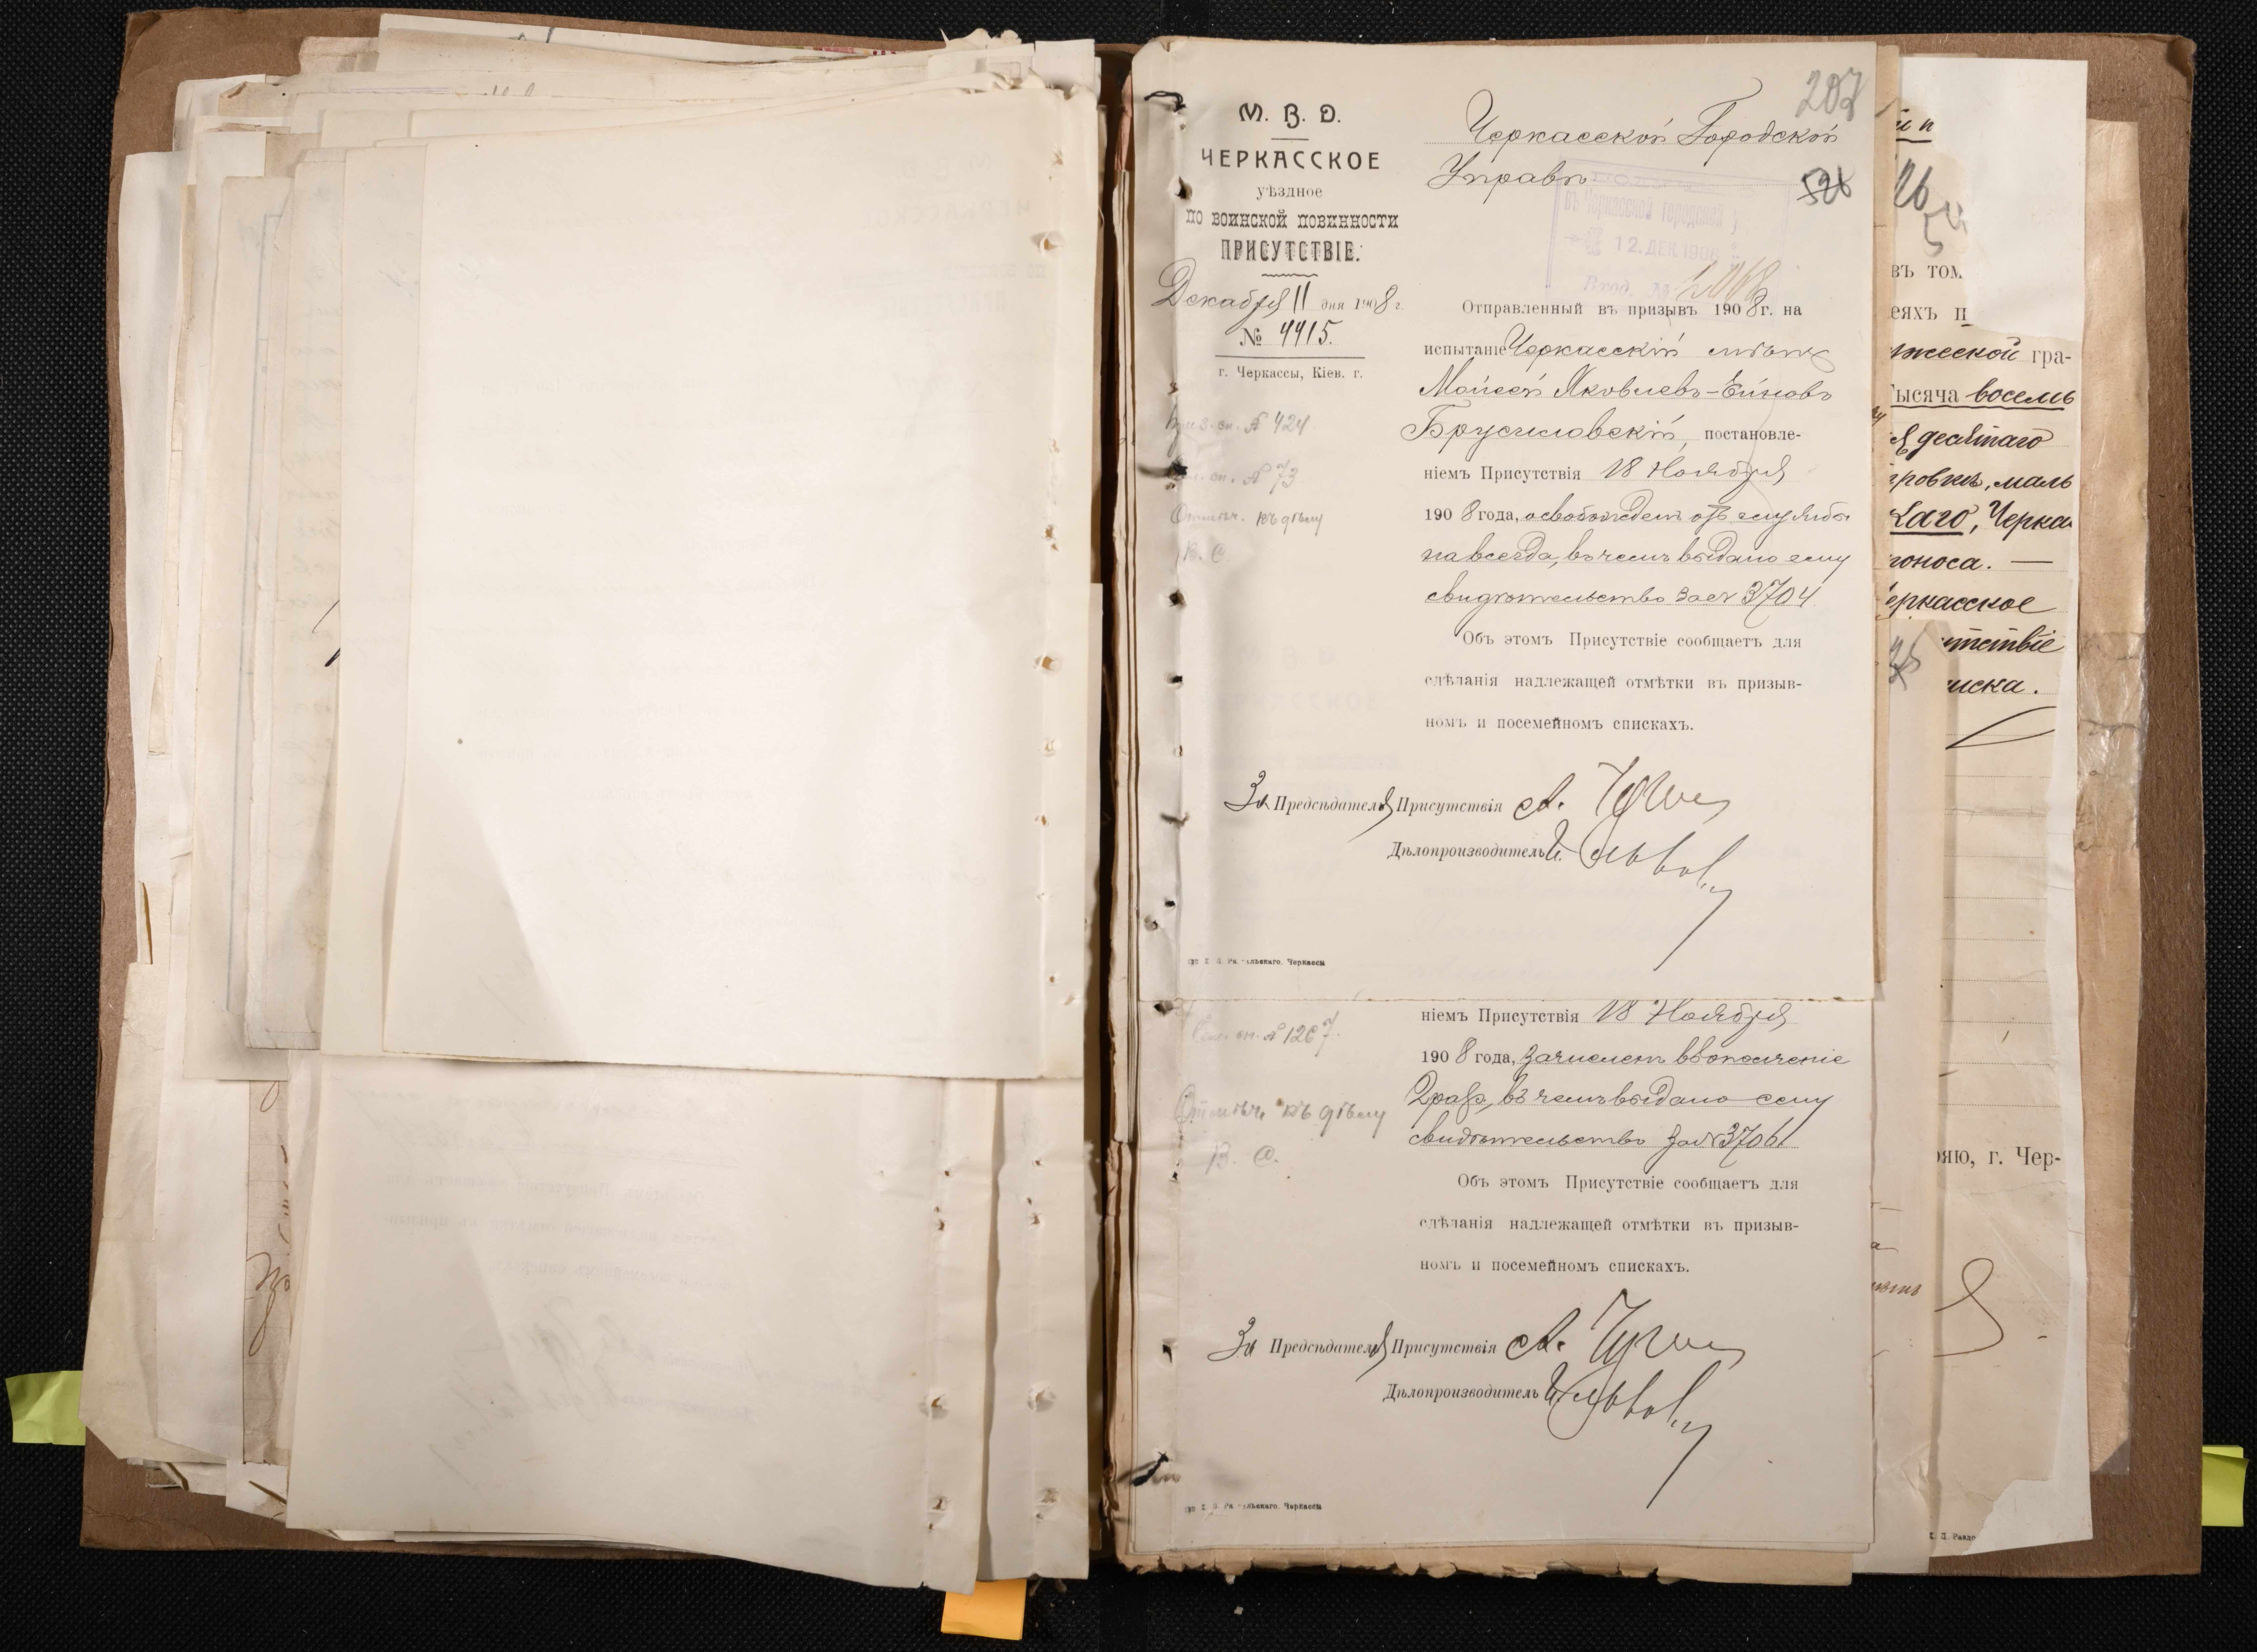 207
М. В. Д.
ЧЕРКАССКОЕ
уѣздное
ПО ВОИНСКОЙ ПОВИННОСТИ
ПРИСУТСТВІЕ.
Декабря 11 дня 1908 г.
№ 4415.
г. Черкассы, Кіев. г.
Приз. сп. № 424
сп. № 73
Отмѣч. къ дѣлу
В. С
Черкасской Городской
Управѣ
526
въ Черкасской городской
12. ДЕК 1908
Вход. №
Отправленный въ призывъ 1908 г. на
испытаніе Черкасскій мѣщ
Мойсей Яковлевъ-Ейновъ
Брусиловскій, постановле-
ніемъ Присутствія 18 Ноября
1908 года, освобожденъ отъ службы
навсегда, въ чемъ выдано ему
свидѣтельство за № 3704
Объ этомъ Присутствіе сообщаетъ для
сдѣланія надлежащей отмѣтки въ призыв-
номъ и посемейномъ спискахъ.
За Предсѣдателя Присутствія А.
Дѣлопроизводитель И.
Черкассы
сп. № 1267.
Отмѣч. къ дѣлу
В. С.
ніемъ Присутствія 18 Ноября
1908 года, зачисленъ въ ополченіе
2 разр, въ чемъ выдано ему
свидѣтельство за № 3706
Объ этомъ Присутствіе сообщаетъ для
сдѣланія надлежащей отмѣтки въ призыв-
номъ и посемейномъ спискахъ.
За Предсѣдателя Присутствія А.
Дѣлопроизводитель И.
Черкассы
въ том
еяхъ п
жеской гра-
ысяча восемь
десятаго
ровичъ, маль
каго, Черка
оноса. —
еркасское
утствіе
иска.
ряю, г. Чер-